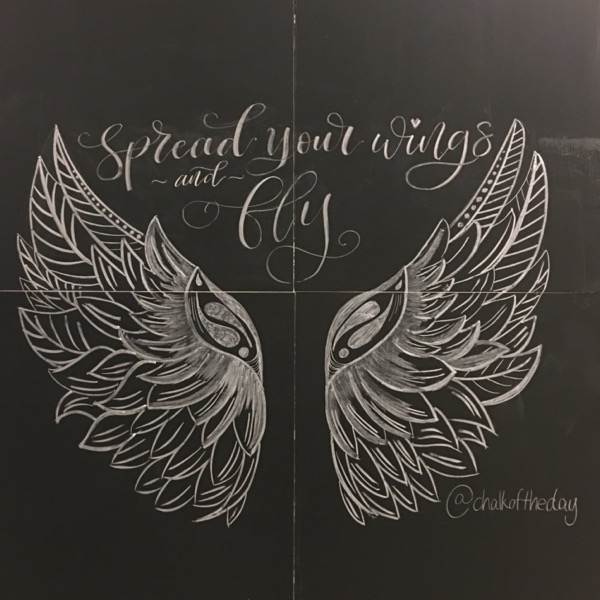 spread your wings
~ and ~
fly
@chalkoftheday